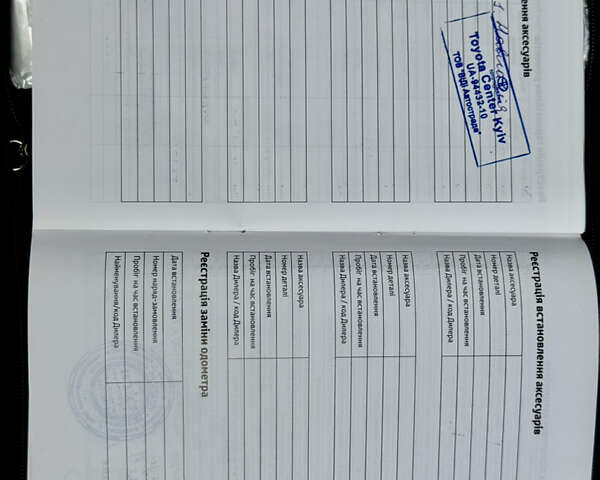 ення аксесуарів
Toyota Center Kyiv
UA-94432-10
ТОВ "ВіДі Автострада"
Реєстрація встановлення аксесуарів
Назва аксесуара
Номер деталі
Дата встановлення
Пробіг на час встановлення
Назва Дилера / код Дилера
Назва аксесуара
Номер деталі
Дата встановлення
Пробіг на час встановлення
Назва Дилера / код Дилера
Назва аксесуара
Номер деталі
Дата встановлення
Пробіг на час встановлення
Назва Дилера / код Дилера
Реєстрація заміни одометра
Дата встановлення
Номер наряд-замовлення
Пробіг на час встановлення
Найменування/код Дилера